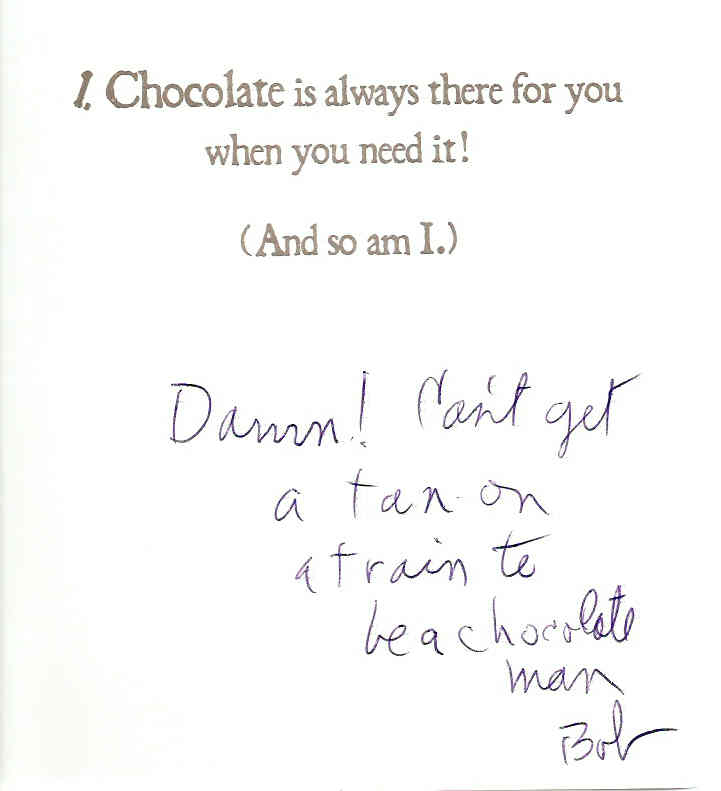 1. Chocolate is always there for you
when you need it!
(And so am I.)
Damn! Can't get
a tan on
a train to
be a chocolate
man
Bob